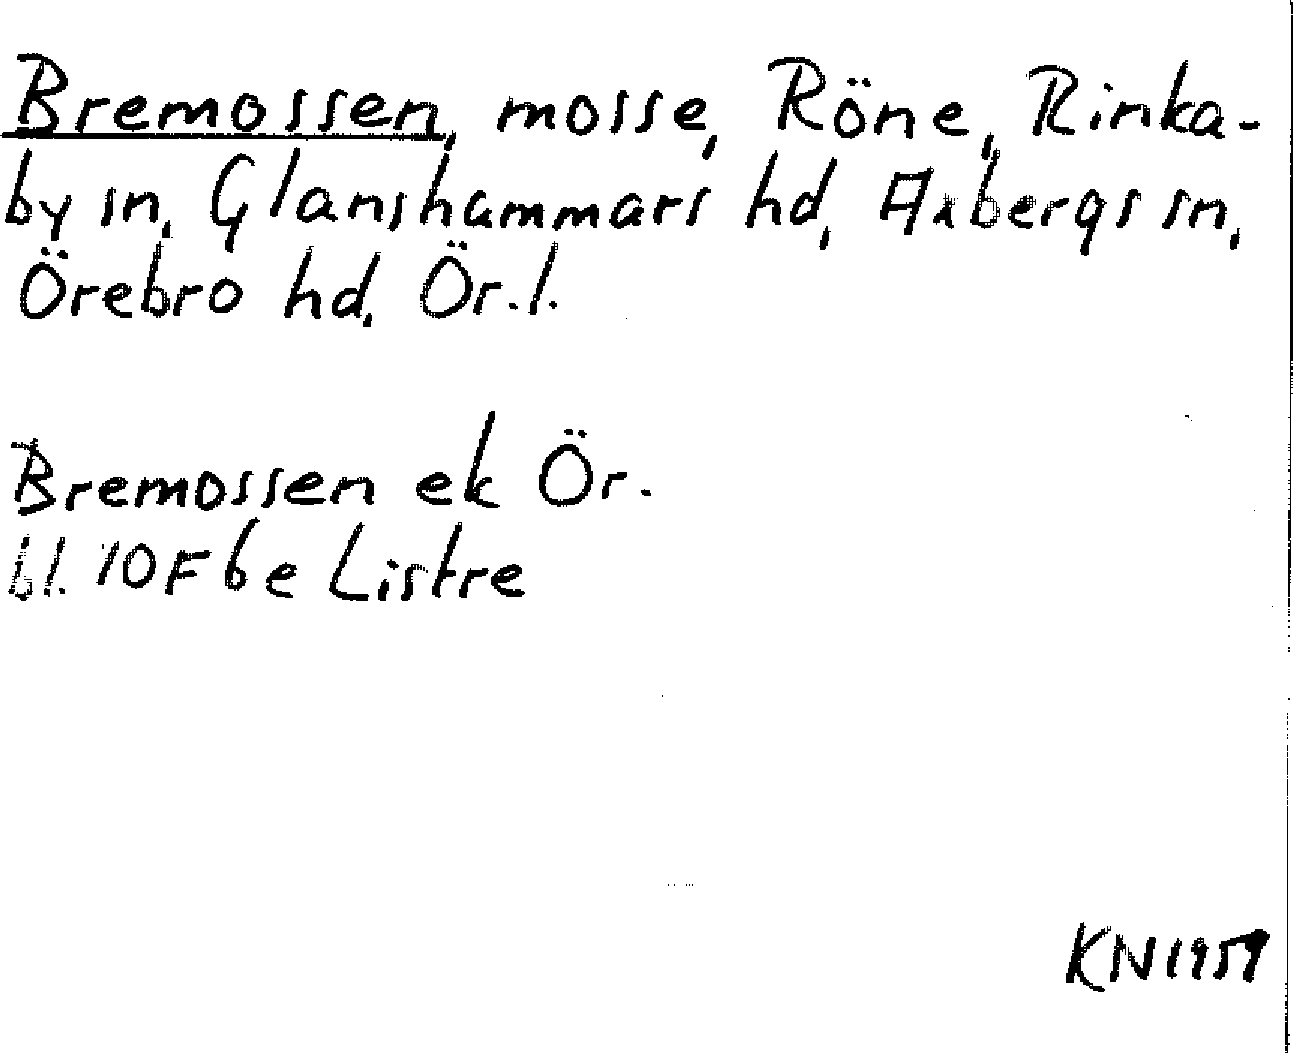 Bremossen, mosse, Röne, Rinka-
by sn, Glanshammars hd, Axbergs sn,
Örebro hd, Ör. l.
Bremossen ek Ör.
bl. 10F6e Listre
KN 1959